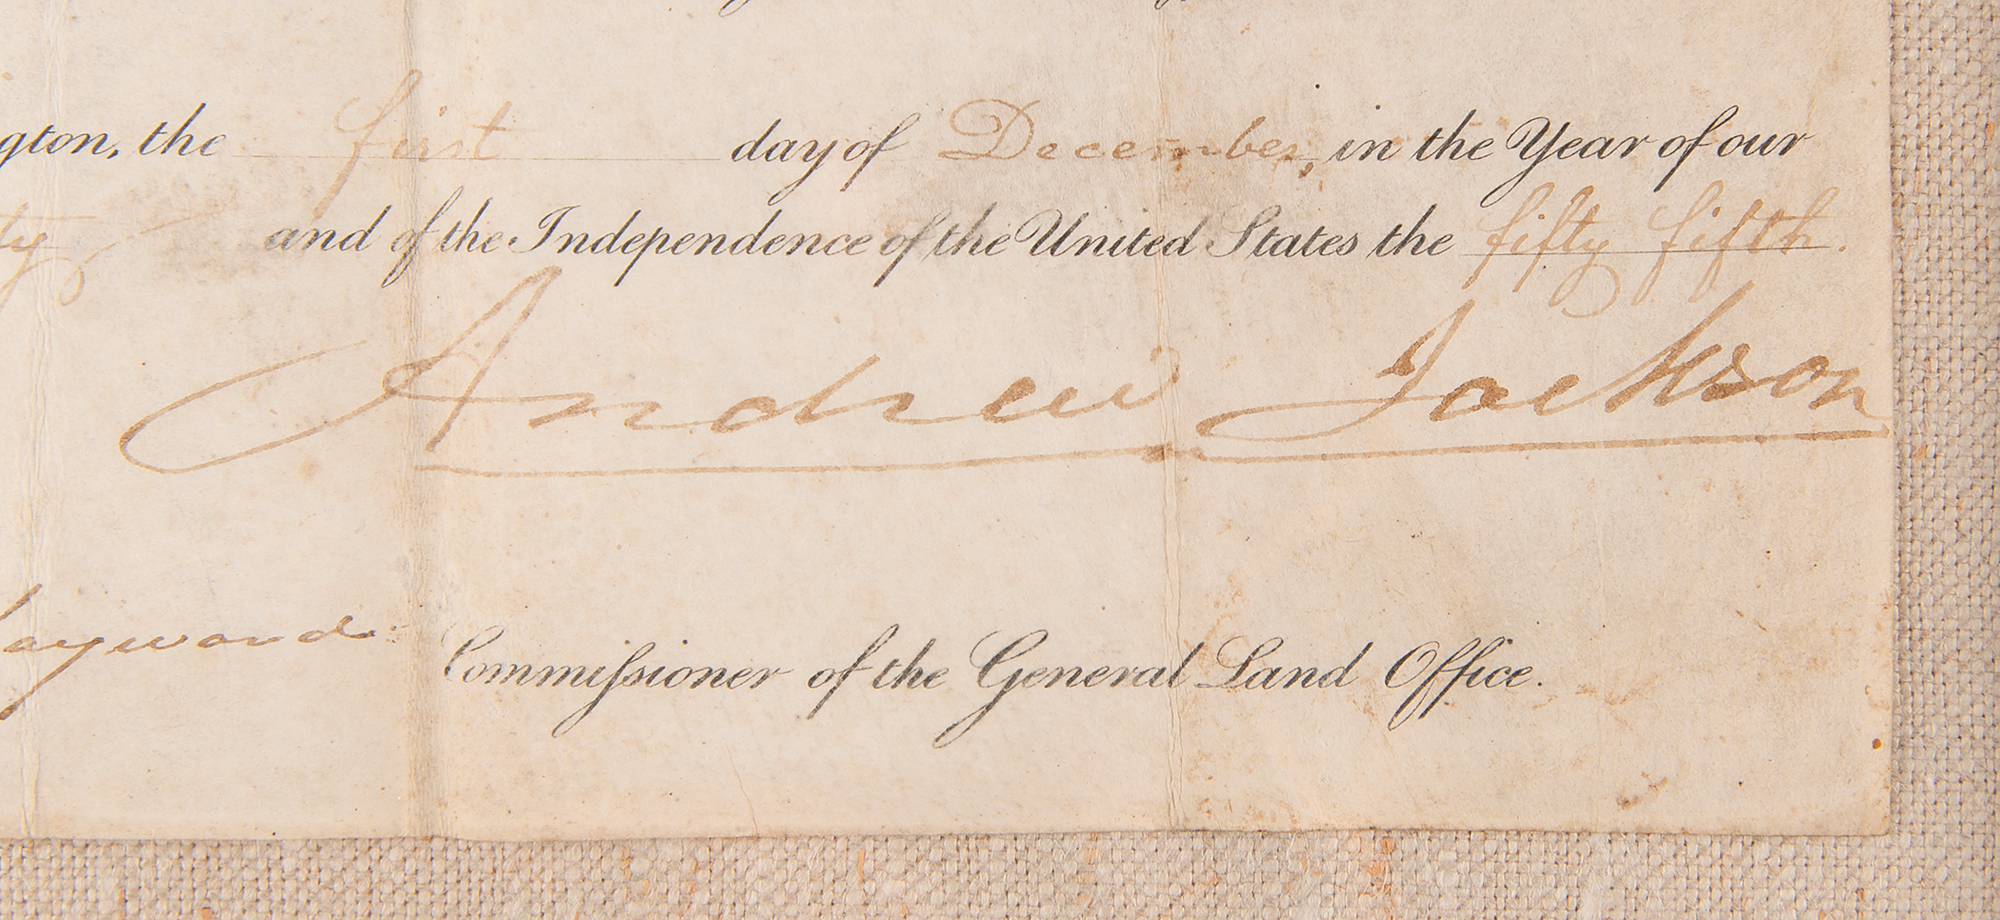 gton, the first day of December, in the Year of our
ty and of the Independence of the United States the fifty fifth.
Andrew Jackson
ayward
Commiſsioner of the General Land Office.